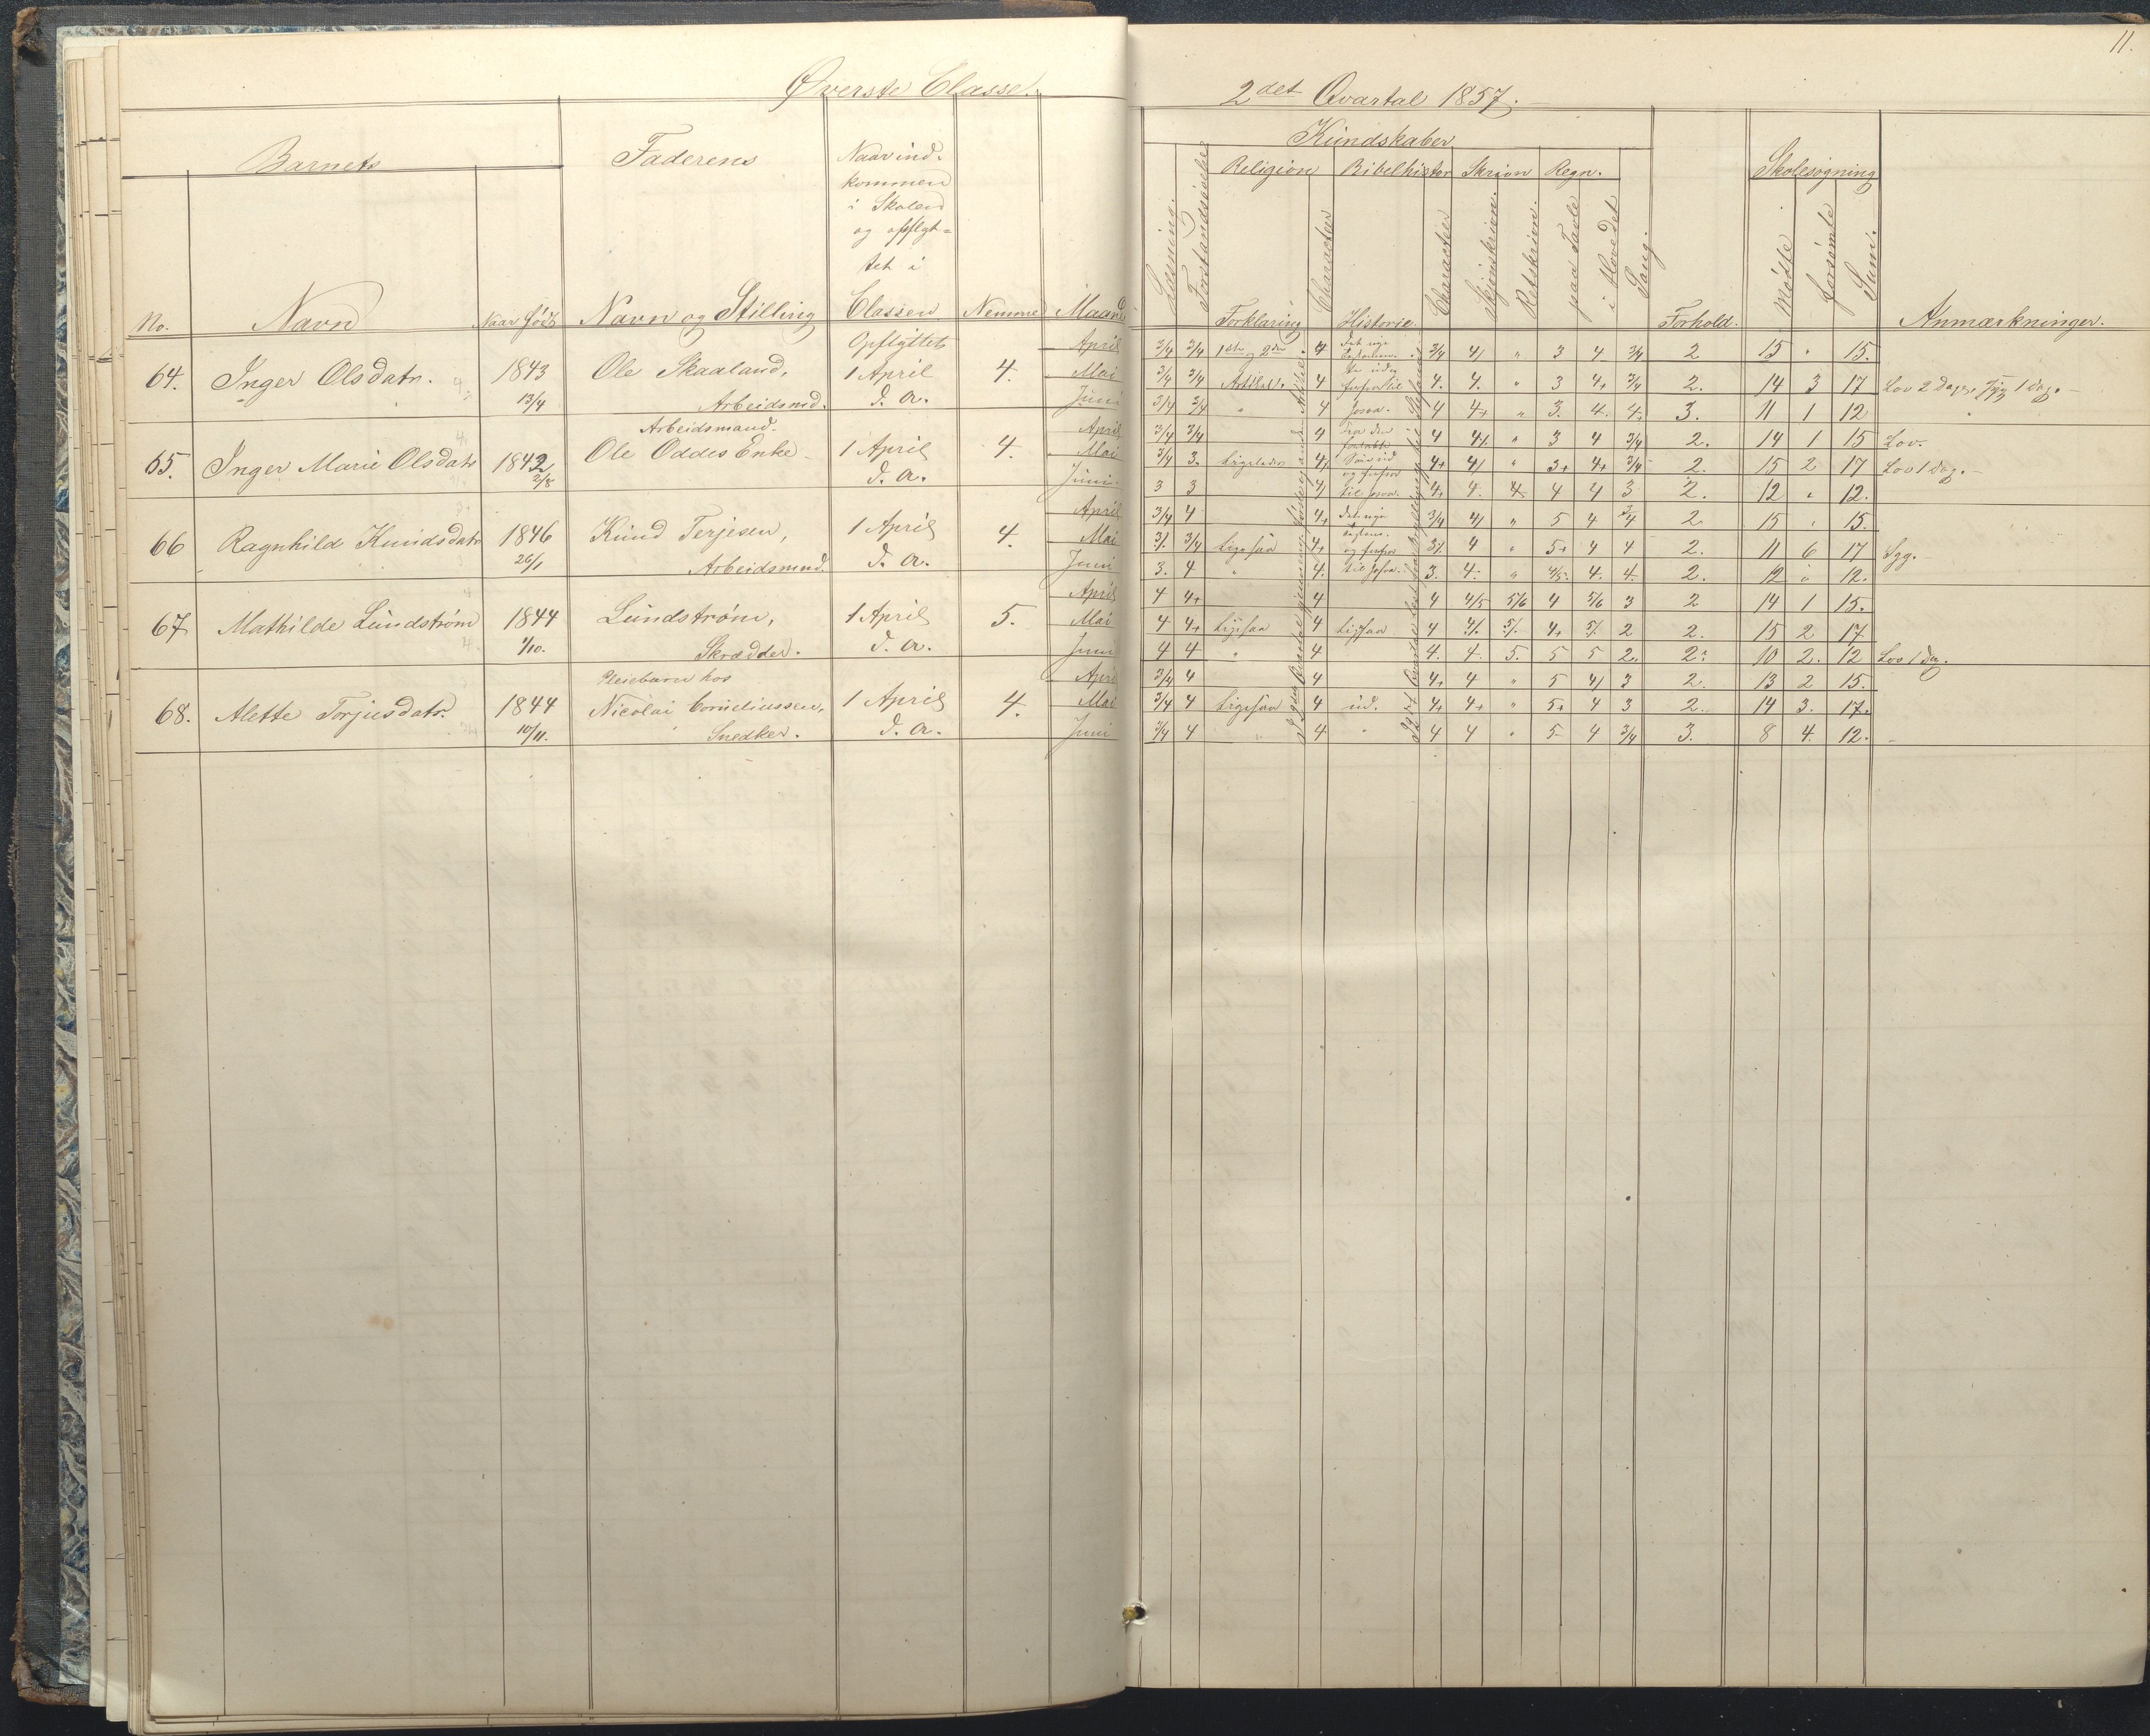 11.
Øverste Classe.
2det Qvartal 1857.
Barnets
Faderens
Naar ind-
kommen
i Skolen
og opflyt-
tet i
Classen.
Kundskaber
Religion Bibelhistor Skrivn Regn.
Skolesøgning
No. Navn Naar født Navn og Stilling Nemme Maaned
Læsning. Forstandsøvelse Forklaring Charakter Historie. Charakter Skjønskrivn. Retskrivn. paa Tavle i Hovedet Sang. Forhold. Mødte forsømte Sum. Anmærkninger.
Opflyttet April 3/4 3/4 1ste og 2den 4 Det nye 3/4 4/ " 3 4 3/4 2 15 " 15.
64. Inger Olsdatr. 1843 Ole Skaaland, 1 April 4. Mai 3/4 3/4 Artikel. 4 4. 4. " 3 4+ 3/4 2. 14 3 17 Lov 2 Dage, syg 1 Dag.
13/4 Arbeidsmd. d. A. Juni 3/4 3/4 " 4 Josva. 4 4+ " 3. 4. 4+ 3. 11 1 12
Arbeidsmand. April 3/4 3/4 4 Fra den 4 4/ " 3 4 3/4 2. 14 1 15 Lov.
65. Inger Marie Olsdatr 1842 Ole Oddes Enke 1 April 4. Mai 3/4 3. Ligeledes 4/ 4+ 4/ " 3+ 4+ 3/4 2. 15 2 17 Lov 1 Dag.
2/8 d. A. Juni 3 3 4/ til Josva. 4+ 4. 4. 4 4 3 2. 12 " 12.
April 3/4 4 4+ det nye 3/4 4/ " 5 4 3/4 2 15 " 15.
66 Ragnhild Knudsdatr 1846 Knud Terjesen, 1 April 4. Mai 3/. 3/4 Ligesaa 4+ 3/. 4 " 5+ 4 4 2. 11 6 17 Syg.
26/1 Arbeidsmnd. d. A. Juni 3. 4 " 4. til Josva. 3. 4. " 4/5. 4. 4. 2. 12 " 12.
April 4 4+ 4 4 4/5 5/6 4 5/6 3 2 14 1 15.
67 Mathilde Lundstrøm 1844 Lundstrøm, 1 April 5. Mai 4 4+ Ligesaa 4 Ligesaa 4 4/. 5/. 4+ 5/. 2 2. 15 2 17
1/10. Skrædder. d. A. Juni 4 4 " 4 4. 4. 5. 5 5 2. 2. 10 2. 12 Lov 1 Dag.
Pleiebarn hos April 3/4 4 4 4+ 4 " 5 4/ 3 2. 13 2 15.
68. Alette Torjusdatr. 1844 Nicolai Corneliussen, 1 April 4. Mai 3/4 4 Ligesaa 4 id. 4+ 4+ " 5+ 4 3 2. 14 3. 17.
10/11. Snedker. d. A. Juni 3/4 4 " 4 " 4 4 " 5 4 3/4 3. 8 4. 12.